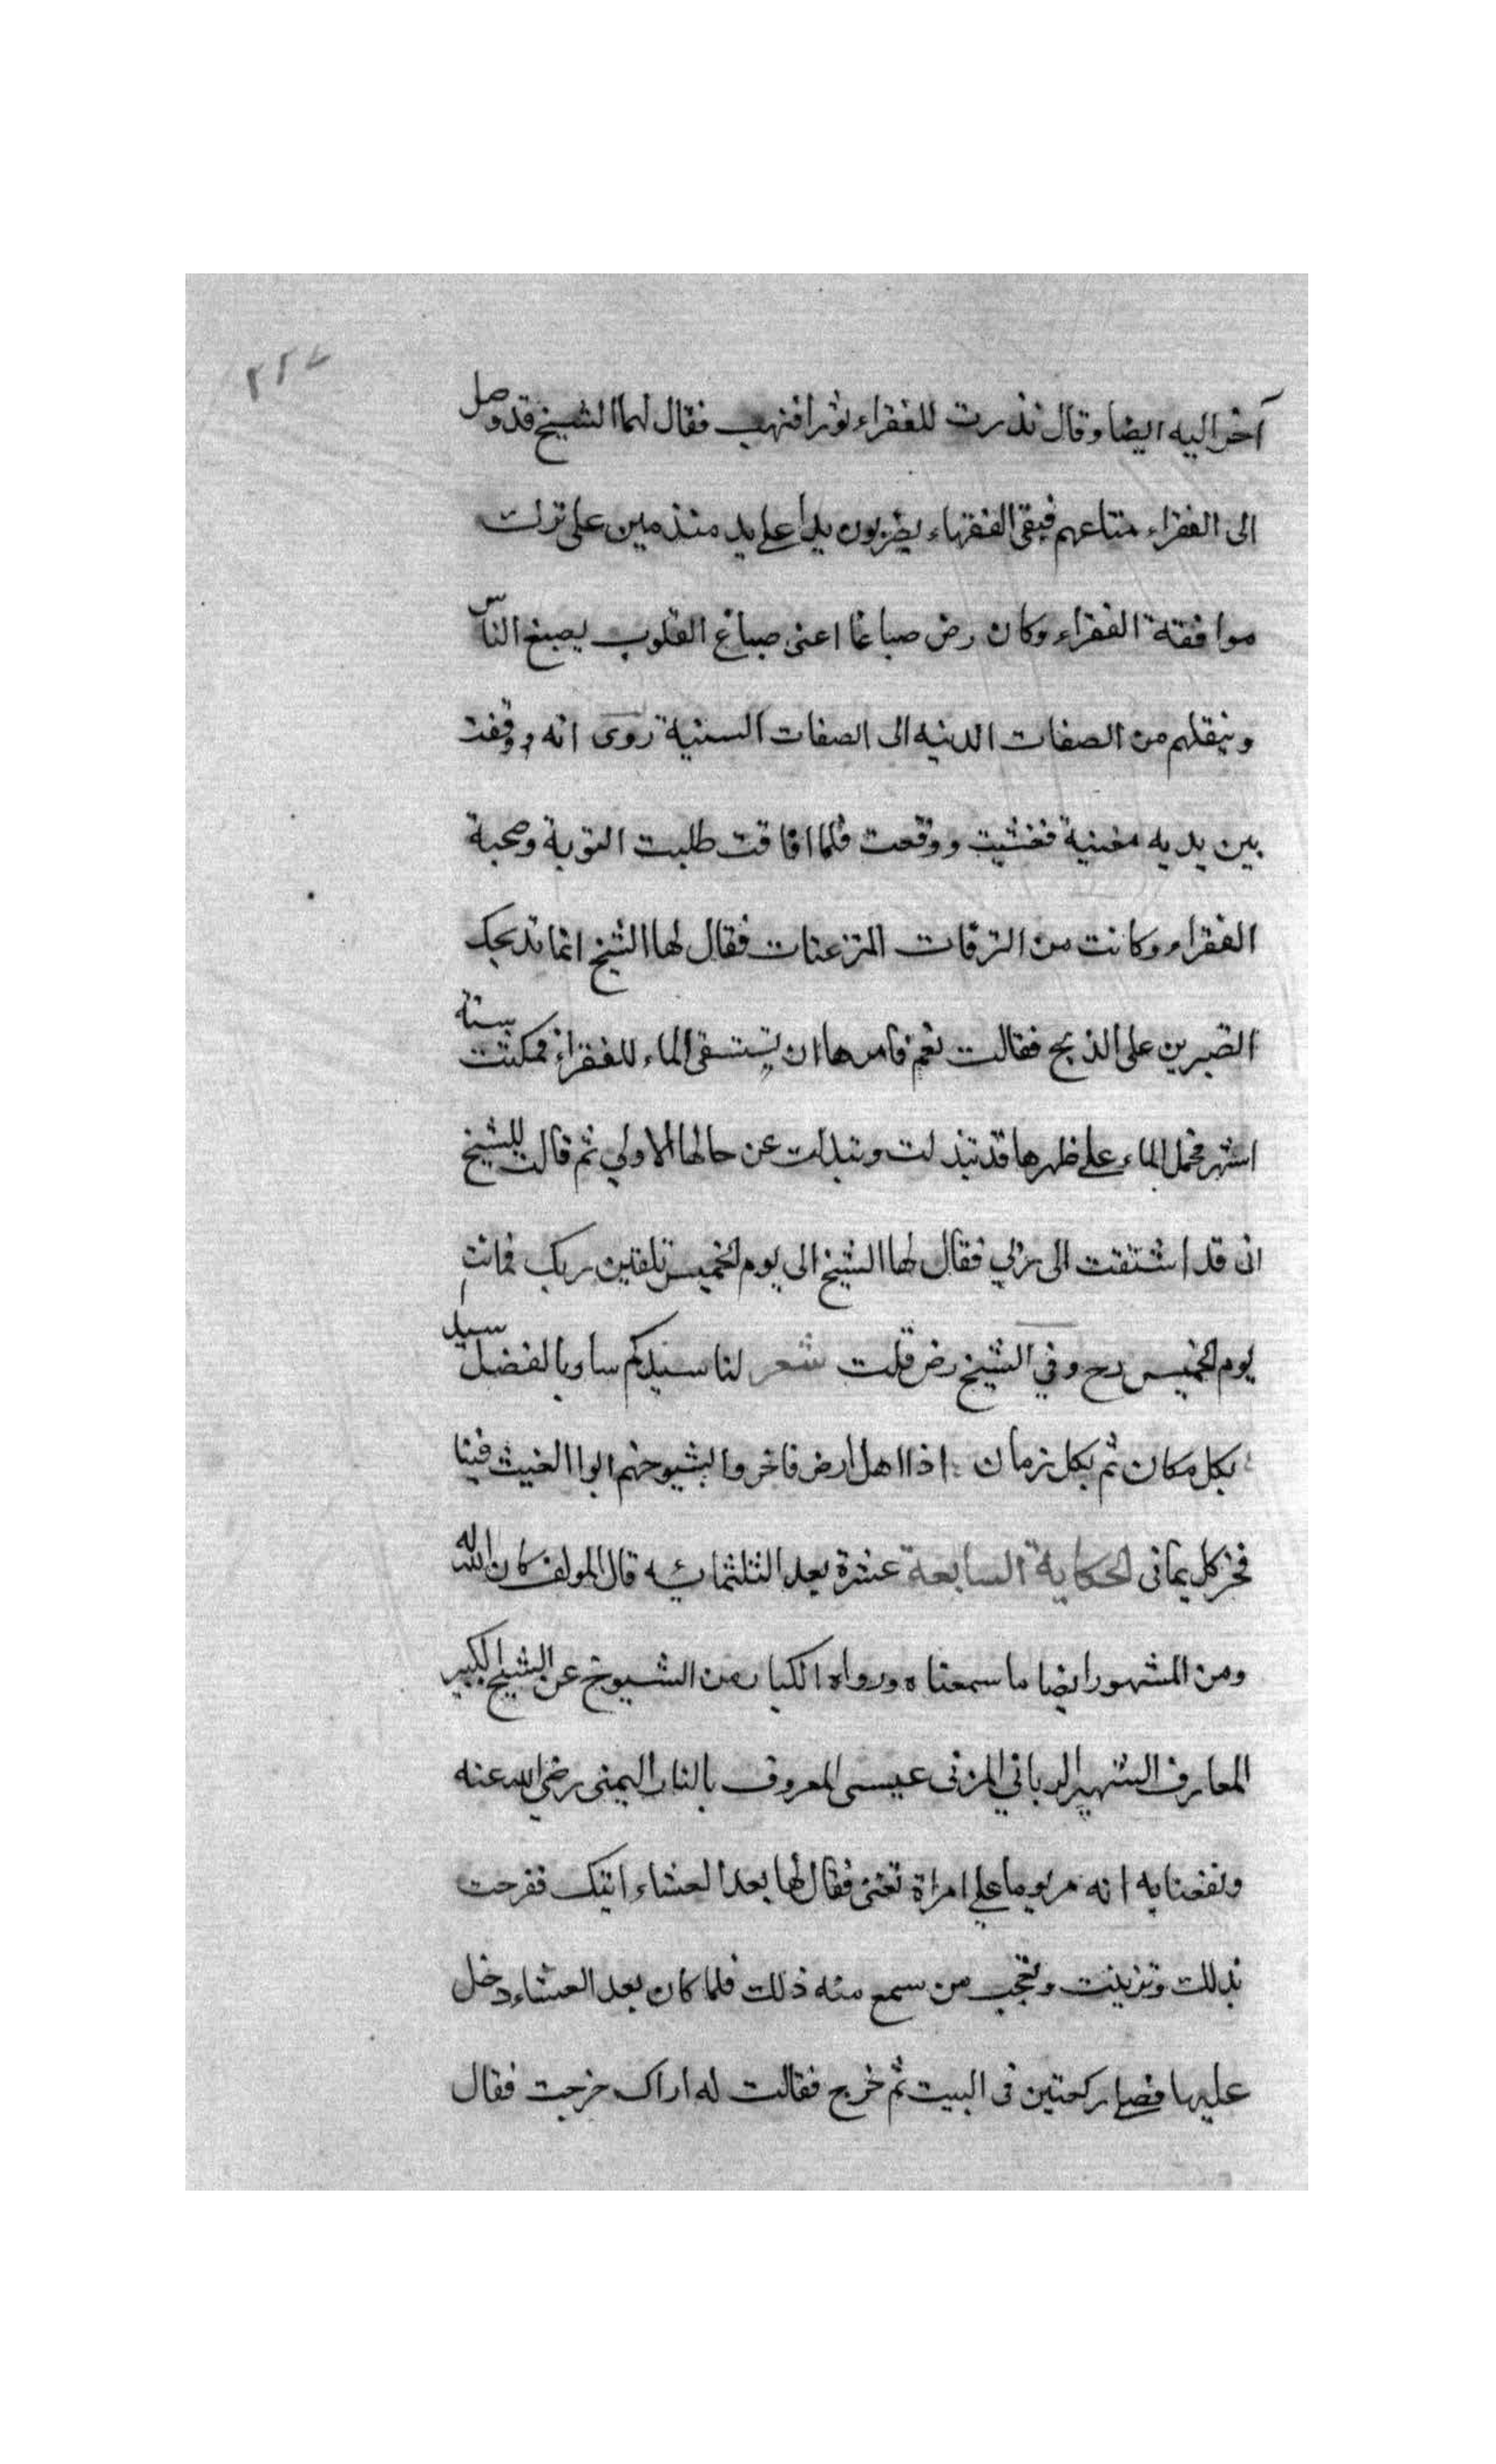 ٢٢٧
آخر اليه ايضا وقال نذرت للفقراء ثورا فنهب فقال لهما الشيخ قد وصل
الى الفقراء متاعهم فبقى الفقهاء يضربون يدا على يد متندمين على ترك
موافقة الفقراء وكان رض صباغا اعنى صباغ القلوب يصبغ الناس
وينقلهم من الصفات الدنيه الى الصفات السنية روى انه وقفت
بين يديه مغنية فغشيت ووقعت فلما افاقت طلبت التوبة وصحبة
الفقراء وكانت من الترفات فقال لها الشيخ انما نذبحك
اتصبرين على الذبح فقالت نعم فامرها ان تستقى الماء للفقراء فمكثت ستة
اشهر تحمل الماء على ظهرها قد تبذلت وتبدلت عن حالها الاولى ثم قالت للشيخ
انى قد اشتقت الى ربي فقال لها الشيخ الى يوم الخميس تلقين ربك فماتت
يوم الخميس رح وفي الشيخ رض قلت شعر لنا سيدكم ساد بالفضل سيد
بكل مكان ثم بكل زمان اذا اهل ارض فاخروا بشيوخهم ابوا الغيث فينا
فخر كل يمانى الحكاية السابعة عشرة بعد الثلثمائيه قال المولف كان الله له
ومن المشهور ايضا ما سمعناه ورواه الكبار من الشيوخ عن الشيخ الكبير
العارف الشهير الربانى عيسى المعروف اليمنى رضي الله عنه
ونفعنا به انه مر يوما على امراة تغنى فقال لها بعد العشاء اتيك ففرحت
بذلك وتزينت وتعجب من سمع منه ذلك فلما كان بعد العشاء دخل
عليها فصلى ركعتين فى البيت ثم خرج فقالت له اراك خرجت فقال